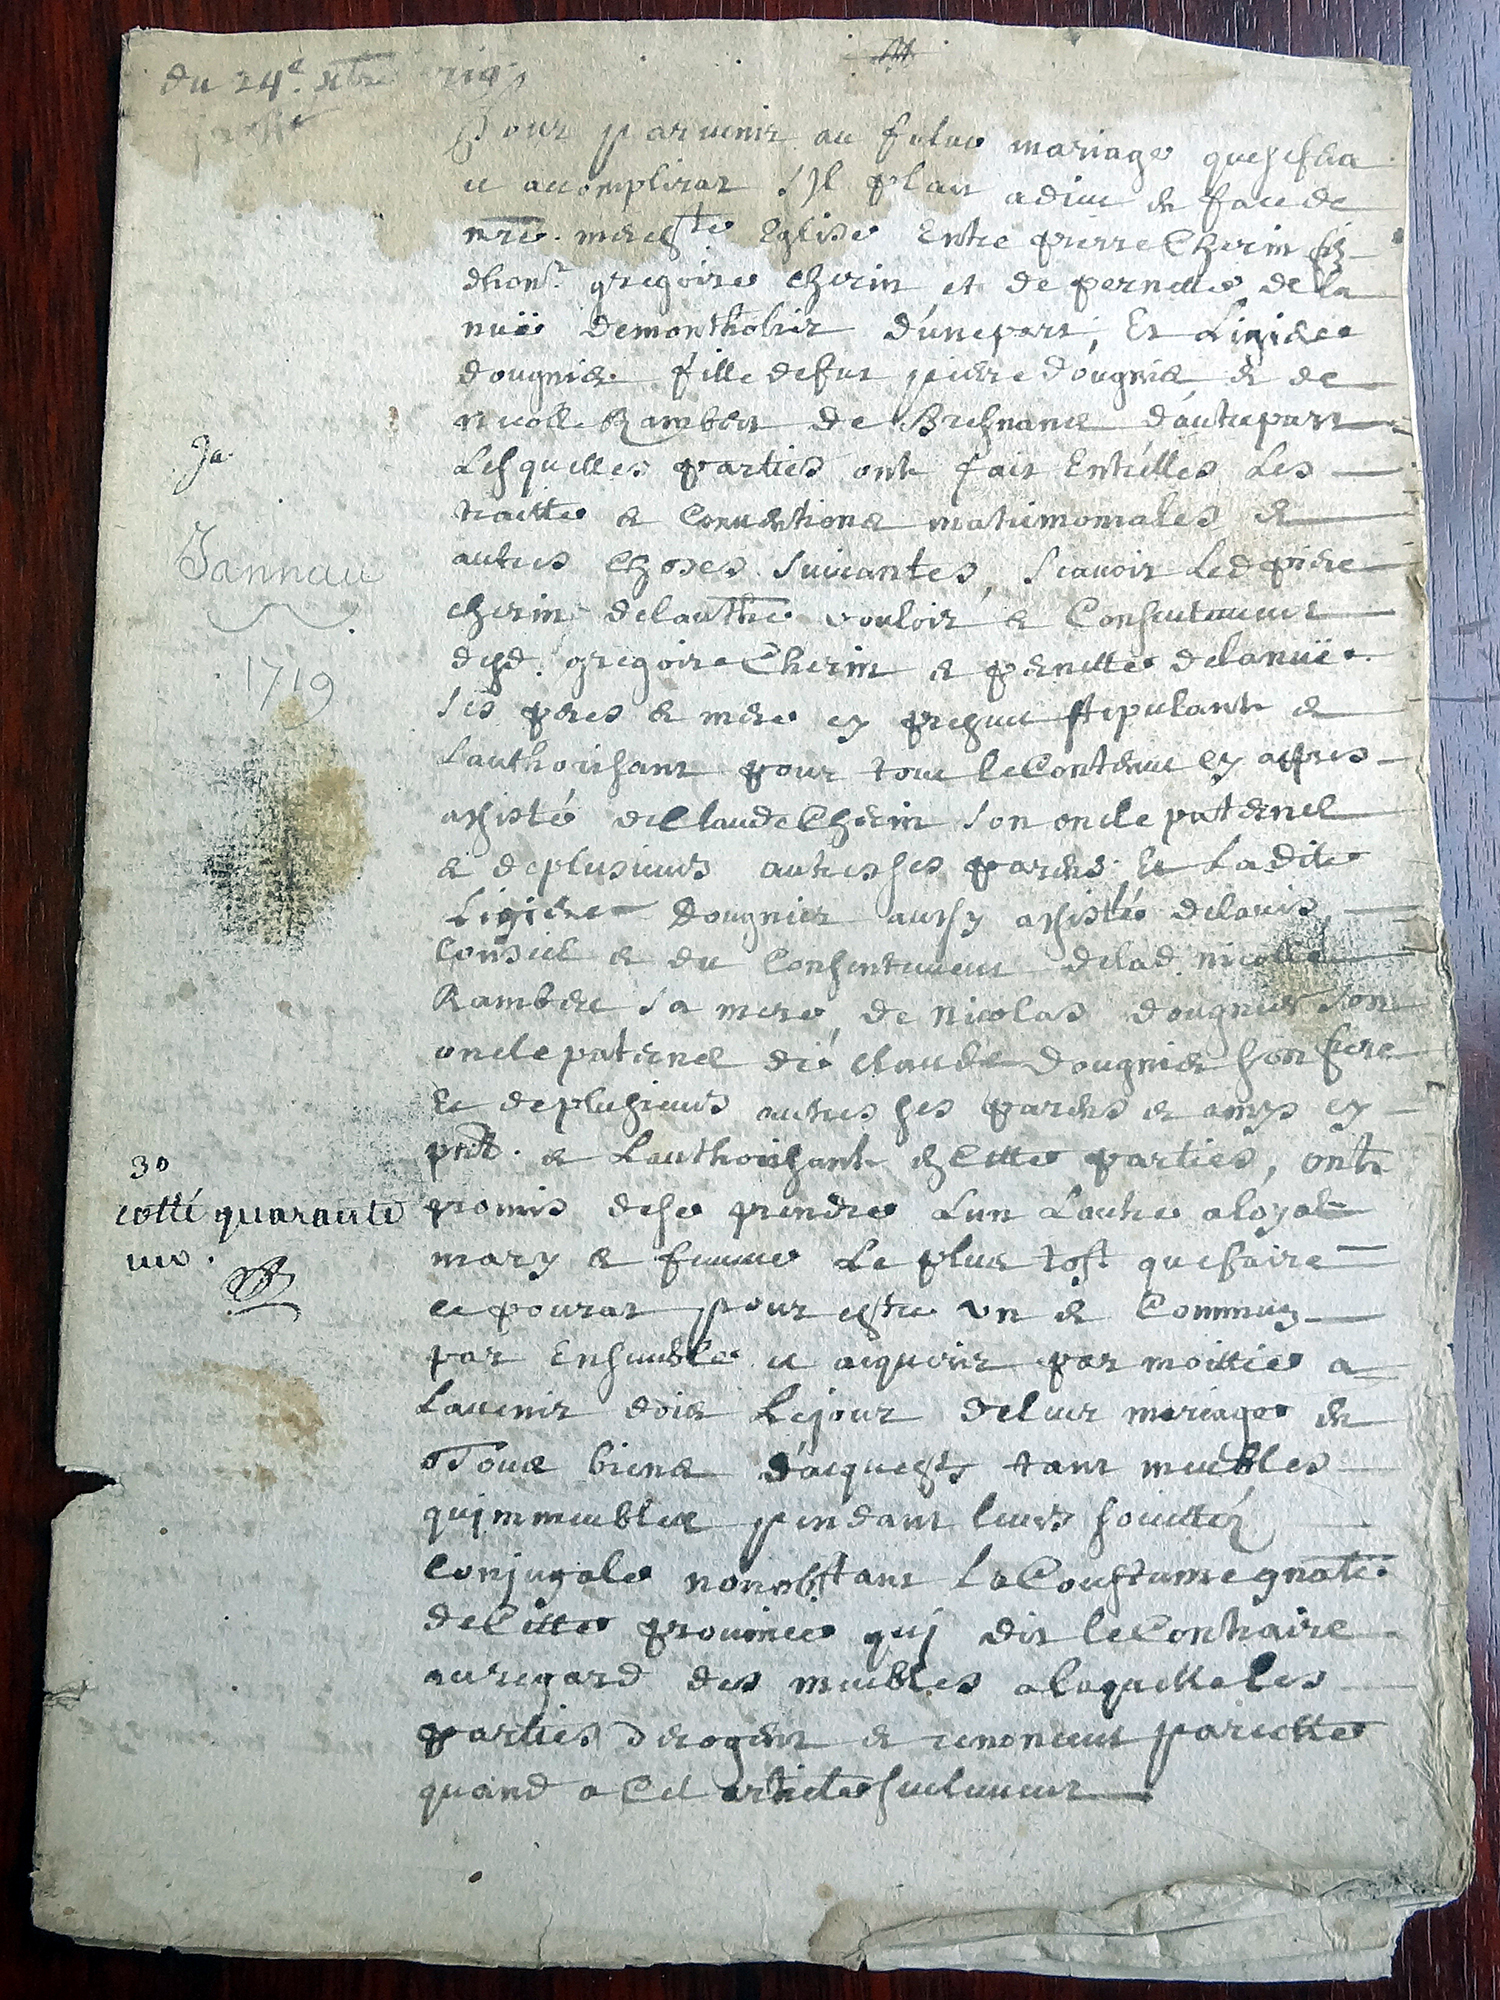 du 24e. xbre 1719
Pour parvenir au futur mariage que se fera
et acomplirat s'Jl plait a dieu en face de
nre. mere Ste Eglise Entre pierre Cherin fiz
dhonr. gregoire cherin et de pernette de la
nuë demontholier d'une part, Et Ligiere
dougnier fille de fut pierre dougnier & de
nicolle Rambert de Bresnans d'autre part
Lesquelles parties ont fait Entr'elles Les
traitte & Conventions matrimoniales &
autres choses suivantes, scavoir Led pierre
cherin de lauthte vouloir & Consentement
desd. gregoire Cherin & pernette delanuë
ses peres & mere cy present stipulants &
Lauthorisant pour tout le Contenu cy apres
assisté de Claude Cherin son oncle paternel
& de plusieurs autres ses parens Et Ladite
Ligiere dougnier aussy assisté de lavis,
Conseil & du Consentement de lad. nicolle
Rambert sa mere, de nicolas dougnier son
oncle paternel de claude dougnier son frere
Et de plusieurs autres ses parens & amys cy
pnt. & Lauthorisant & Cette parties, ont
promis de se prendre Lun Lautre a loyal
mary & femme Le plus tost que faire
ce pourat pour estre un & Commun
par Ensemble et acquerir par moittie a
Lavenir dois Le jour de leur mariage en
Tous biens d'acquests tant meubles
qu'immeubles pendant leurs societté
Conjugale nonobstant La Coustume gnalle
de Cette province qui dit le Contraire
au regard des meubles a laquelle les
parties derogent & renoncent par cette
quand a Cet article seulement
Ja.
Jannau
1719
30
cotté quarante
un.